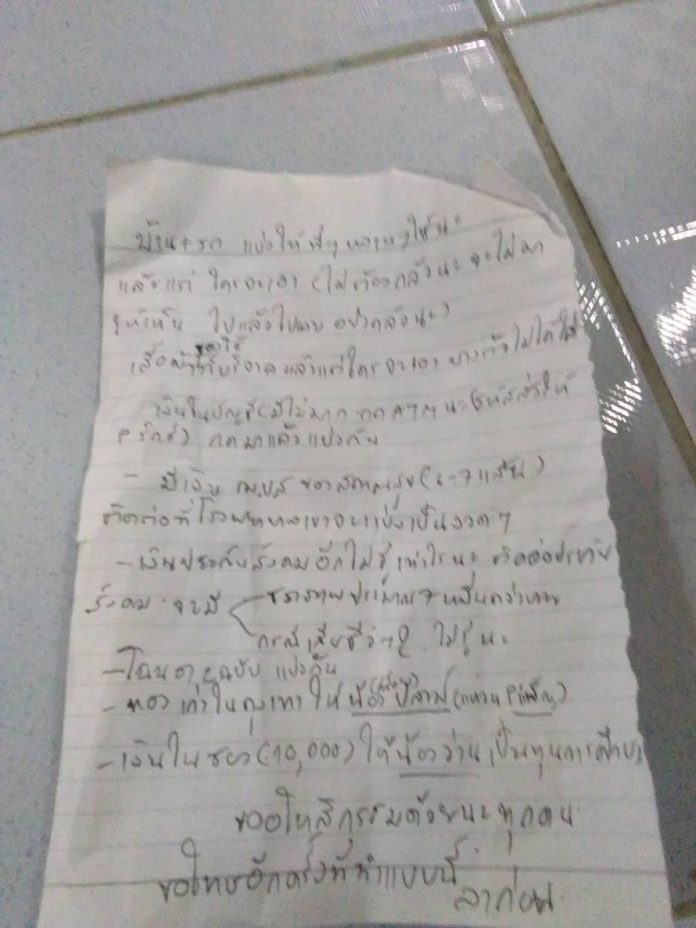 บ้าน + รถ แบ่งให้พี่ๆ หลานๆ ใช้นะ
แล้วแต่ ใครจะเอา (ไม่ต้องกลัวนะ จะไม่มา
ให้เห็น ไปแล้วไปเลย อย่ากลัวนะ)
เสื้อผ้า ของใช้ บริจาค แล้วแต่ใครจะเอา บางตัวไม่ได้ใส่
เงินในบัญชี (มีไม่มาก กด ATM นะ รหัสส่งให้
กดมาแล้วแบ่งกัน
- มีเงิน ของสาธารณสุข (6-7 แสน)
ติดต่อที่โรงพยาบาลเขาจะแบ่งเป็นงวดๆ
- เงินประกันสังคมอีกไม่รู้เท่าไรนะ ติดต่อประกัน
สังคม จะมี ชราภาพประมาณ 7 หมื่นกว่าบาท
กรณีเสียชีวิต ? ไม่รู้นะ
- โฉนด ฉบับ แบ่งกัน
- ทอง เก่าในถุงเทา ให้น้อง
- เงินในซอง (10,000) ให้น้องว่าน เป็นทุนการศึกษา
ขออโหสิกรรมด้วยนะทุกคน
ขอโทษอีกครั้งที่ทำแบบนี้
ลาก่อน